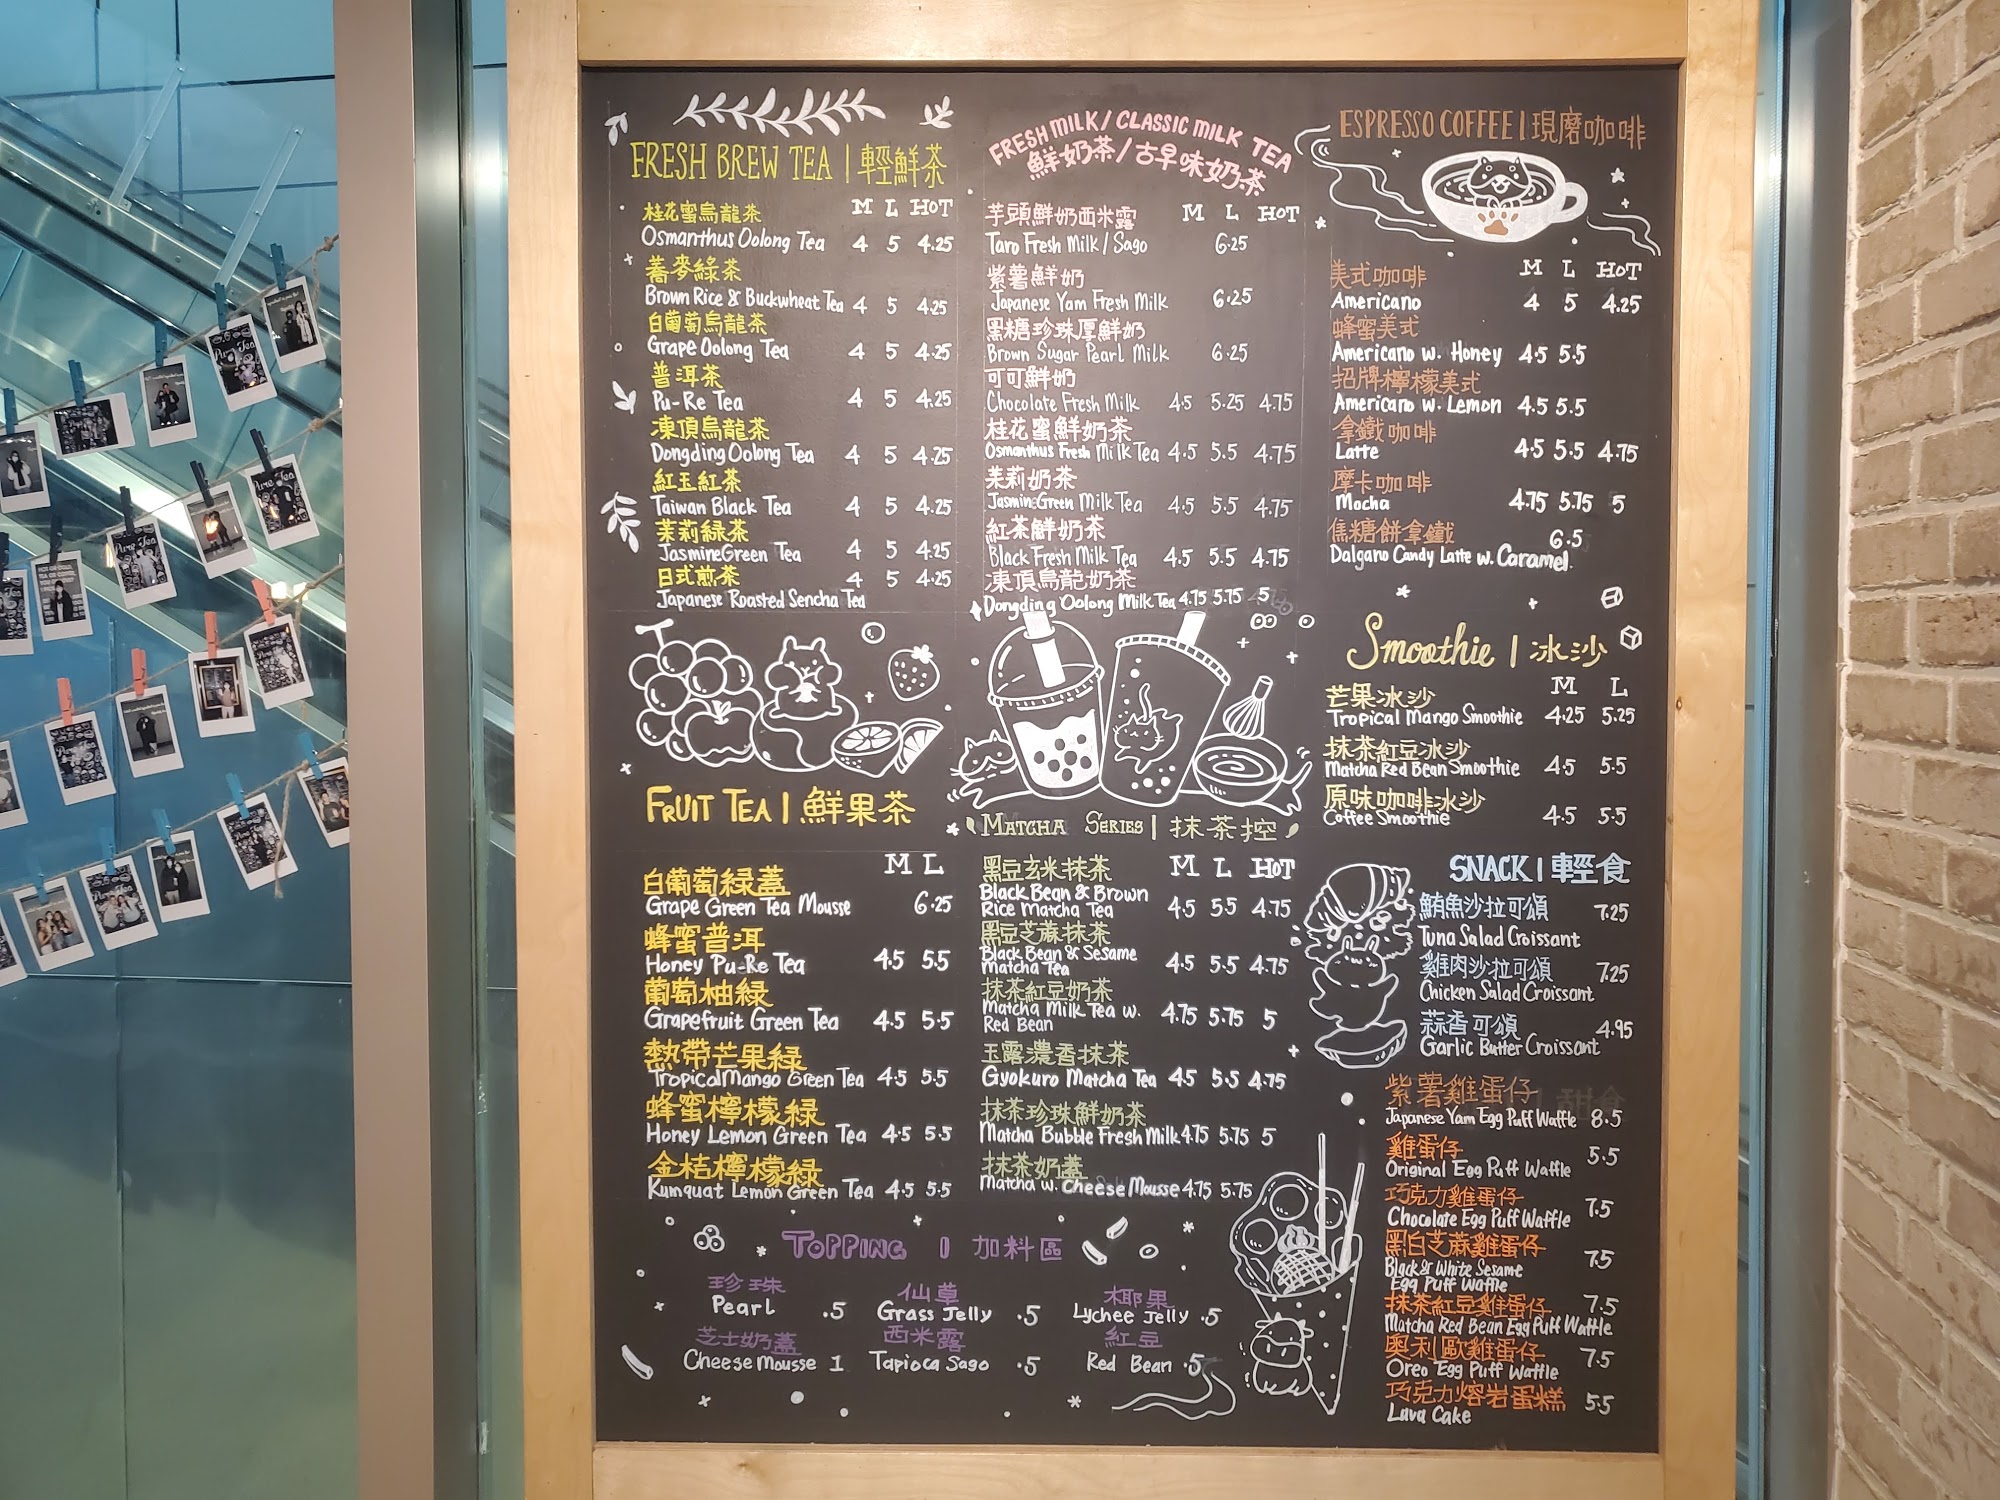 FRESH BREW TEA | 輕鮮茶
M L HOT
桂花蜜烏龍茶
Osmanthus Oolong Tea 4 5 4.25
蕎麥綠茶
Brown Rice & Buckwheat Tea 4 5 4.25
白葡萄烏龍茶
Grape Oolong Tea 4 5 4.25
普洱茶
Pu-Re Tea 4 5 4.25
凍頂烏龍茶
Dongding Oolong Tea 4 5 4.25
紅玉紅茶
Taiwan Black Tea 4 5 4.25
茉莉綠茶
Jasmine Green Tea 4 5 4.25
日式煎茶 4 5 4.25
Japanese Roasted Sencha Tea
FRUIT TEA | 鮮果茶
M L
白葡萄綠蓋
Grape Green Tea Mousse 6.25
蜂蜜普洱
Honey Pu-Re Tea 4.5 5.5
葡萄柚綠
Grapefruit Green Tea 4.5 5.5
熱帶芒果綠
Tropical Mango Green Tea 4.5 5.5
蜂蜜檸檬綠
Honey Lemon Green Tea 4.5 5.5
金桔檸檬綠
Kumquat Lemon Green Tea 4.5 5.5
FRESH MILK / CLASSIC MILK TEA
鮮奶茶/古早味奶茶
芋頭鮮奶西米露 M L HOT
Taro Fresh Milk / Sago 6.25
紫薯鮮奶
Japanese Yam Fresh Milk 6.25
黑糖珍珠厚鮮奶
Brown Sugar Pearl Milk 6.25
可可鮮奶
Chocolate Fresh Milk 4.5 5.25 4.75
桂花蜜鮮奶茶
Osmanthus Fresh Milk Tea 4.5 5.5 4.75
茉莉奶茶
Jasmine Green Milk Tea 4.5 5.5 4.75
紅茶鮮奶茶
Black Fresh Milk Tea 4.5 5.5 4.75
凍頂烏龍奶茶
Dongding Oolong Milk Tea 4.75 5.75 5
MATCHA SERIES | 抹茶控
黑豆玄米抹茶 M L HOT
Black Bean & Brown
Rice Matcha Tea 4.5 5.5 4.75
黑豆芝蔴抹茶
Black Bean & Sesame
Matcha Tea 4.5 5.5 4.75
抹茶紅豆奶茶
Matcha Milk Tea w. 4.75 5.75 5
Red Bean
玉露濃香抹茶
Gyokuro Matcha Tea 4.5 5.5 4.75
抹茶珍珠鮮奶茶
Matcha Bubble Fresh Milk 4.75 5.75 5
抹茶奶蓋
Matcha w. Cheese Mousse 4.75 5.75
TOPPING | 加料區
珍珠
Pearl .5
仙草
Grass Jelly .5
椰果
Lychee Jelly .5
芝士奶蓋
Cheese mousse 1
西米露
Tapioca Sago .5
紅豆
Red Bean .5
ESPRESSO COFFEE | 現磨咖啡
M L HOT
美式咖啡
Americano 4 5 4.25
蜂蜜美式
Americano w. Honey 4.5 5.5
招牌檸檬美式
Americano w. Lemon 4.5 5.5
拿鐵咖啡
Latte 4.5 5.5 4.75
摩卡咖啡
Mocha 4.75 5.75 5
焦糖餅拿鐵 6.5
Dalgano Candy Latte w. Caramel.
Smoothie | 冰沙
M L
芒果冰沙
Tropical Mango Smoothie 4.25 5.25
抹茶紅豆冰沙
Matcha Red Bean Smoothie 4.5 5.5
原味咖啡冰沙
Coffee Smoothie 4.5 5.5
SNACK | 輕食
鮪魚沙拉可頌 7.25
Tuna Salad Croissant
雞肉沙拉可頌 7.25
Chicken Salad Croissant
蒜香可頌 4.95
Garlic Butter Croissant
紫薯雞蛋仔
Japanese Yam Egg Puff Waffle 8.5
雞蛋仔 5.5
Original Egg Puff Waffle
巧克力雞蛋仔 7.5
Chocolate Egg Puff Waffle
黑白芝蔴雞蛋仔 7.5
Black & White Sesame
Egg Puff Waffle
抹茶紅豆雞蛋仔 7.5
Matcha Red Bean Egg Puff Waffle
奧利歐雞蛋仔 7.5
Oreo Egg Puff Waffle
巧克力熔岩蛋糕 5.5
Lava Cake